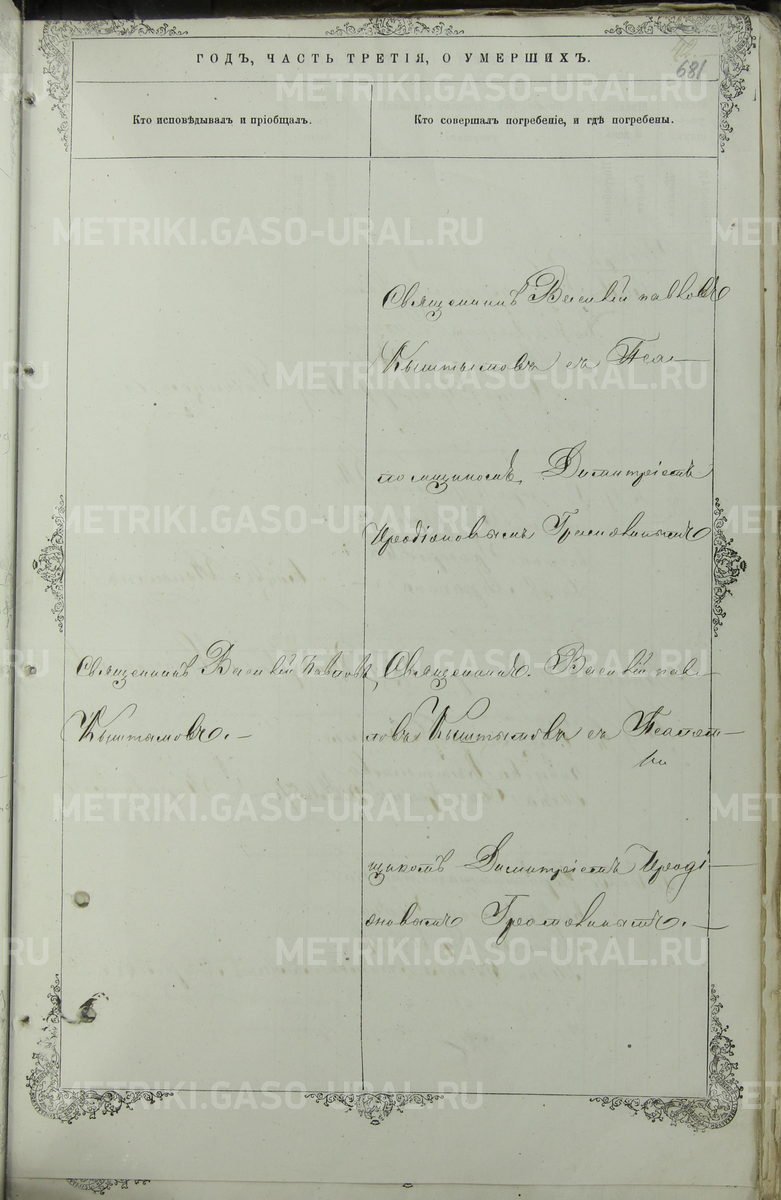 ГОДЪ, ЧАСТЬ ТРЕТІЯ, О УМЕРШИХЪ.
681
Кто исповѣдывалъ и пріобщалъ.
Кто совершалъ погребеніе, и гдѣ погребены.
Священникъ Василій Павловъ
Кыштымовъ съ Псал-
помщикомъ Димитріемъ
Иродіоновымъ
Священникъ Василій Павловъ
Кыштымовъ.-
Священникъ Василій Пав-
ловъ Кыштымовъ съ Псалом-
щикомъ Димитріемъ Ироді-
оновымъ
METRIKI.GASO-URAL.RU